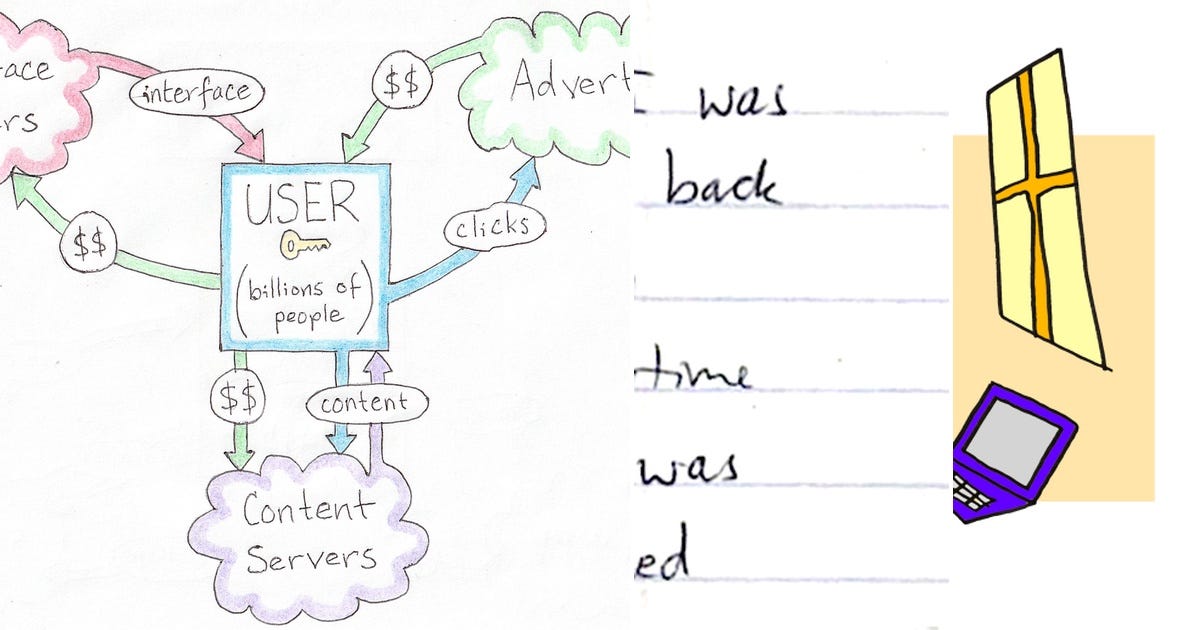 ace
rs
interface
$$
Advert
USER
(billions of
people)
$$
clicks
$$
content
Content
Servers
was
back
time
was
ed